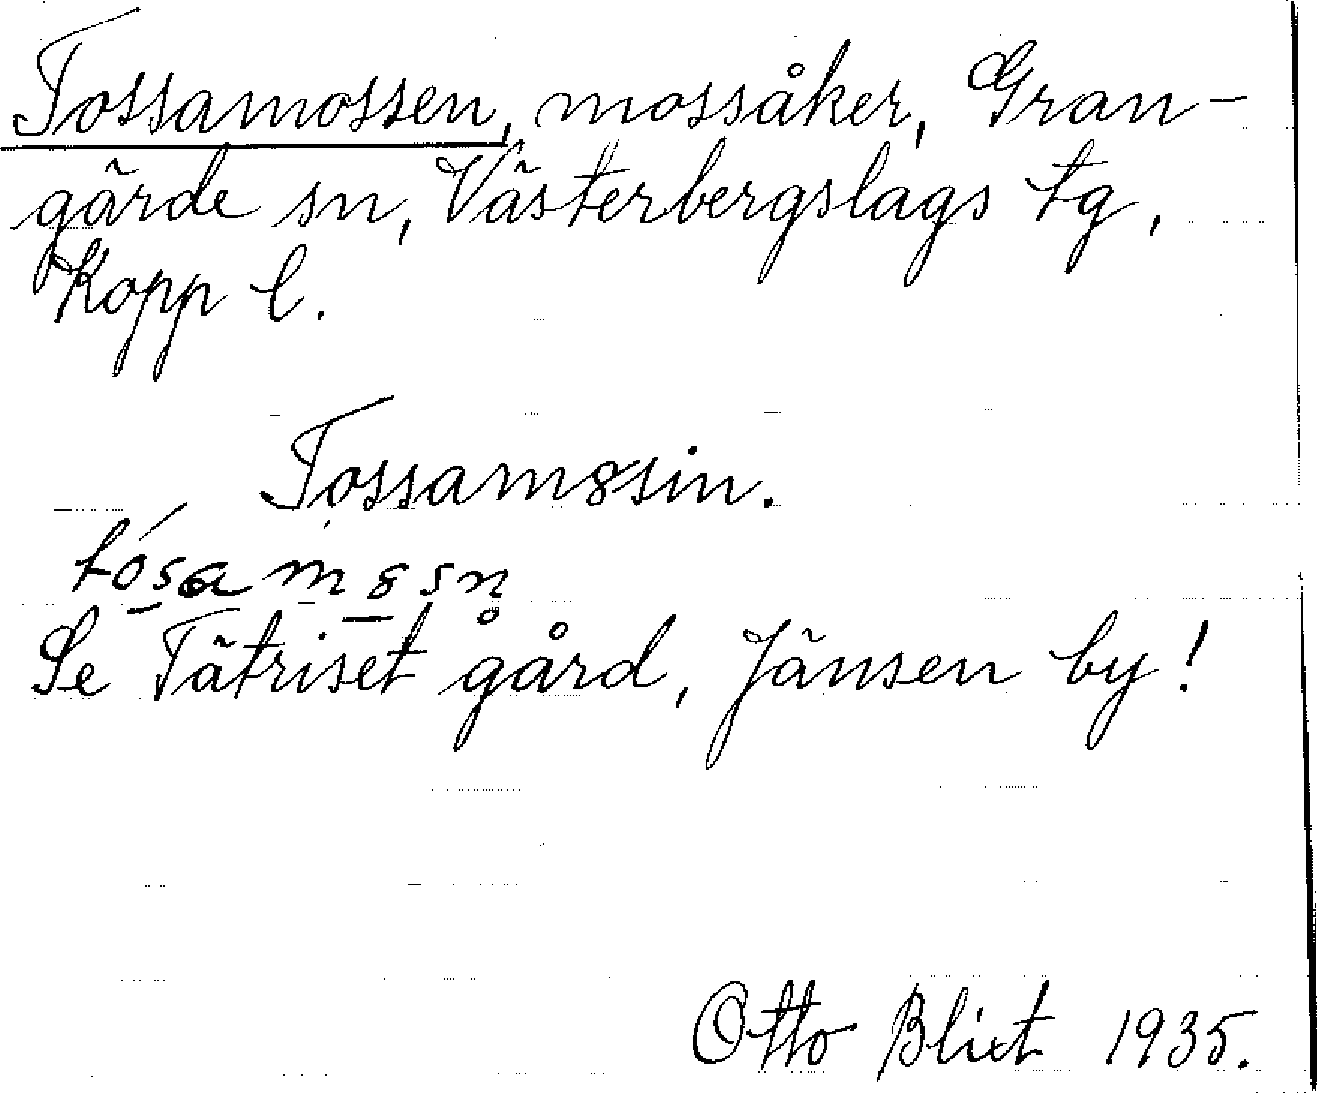 Tossamossen, mossåker, Gran-
gärde sn, Västerbergslags tg,
Kopp l.
Tossam8sin.
tósam8sn̥
Se Tätriset gård, Jänsen by!
Otto Blixt 1935.